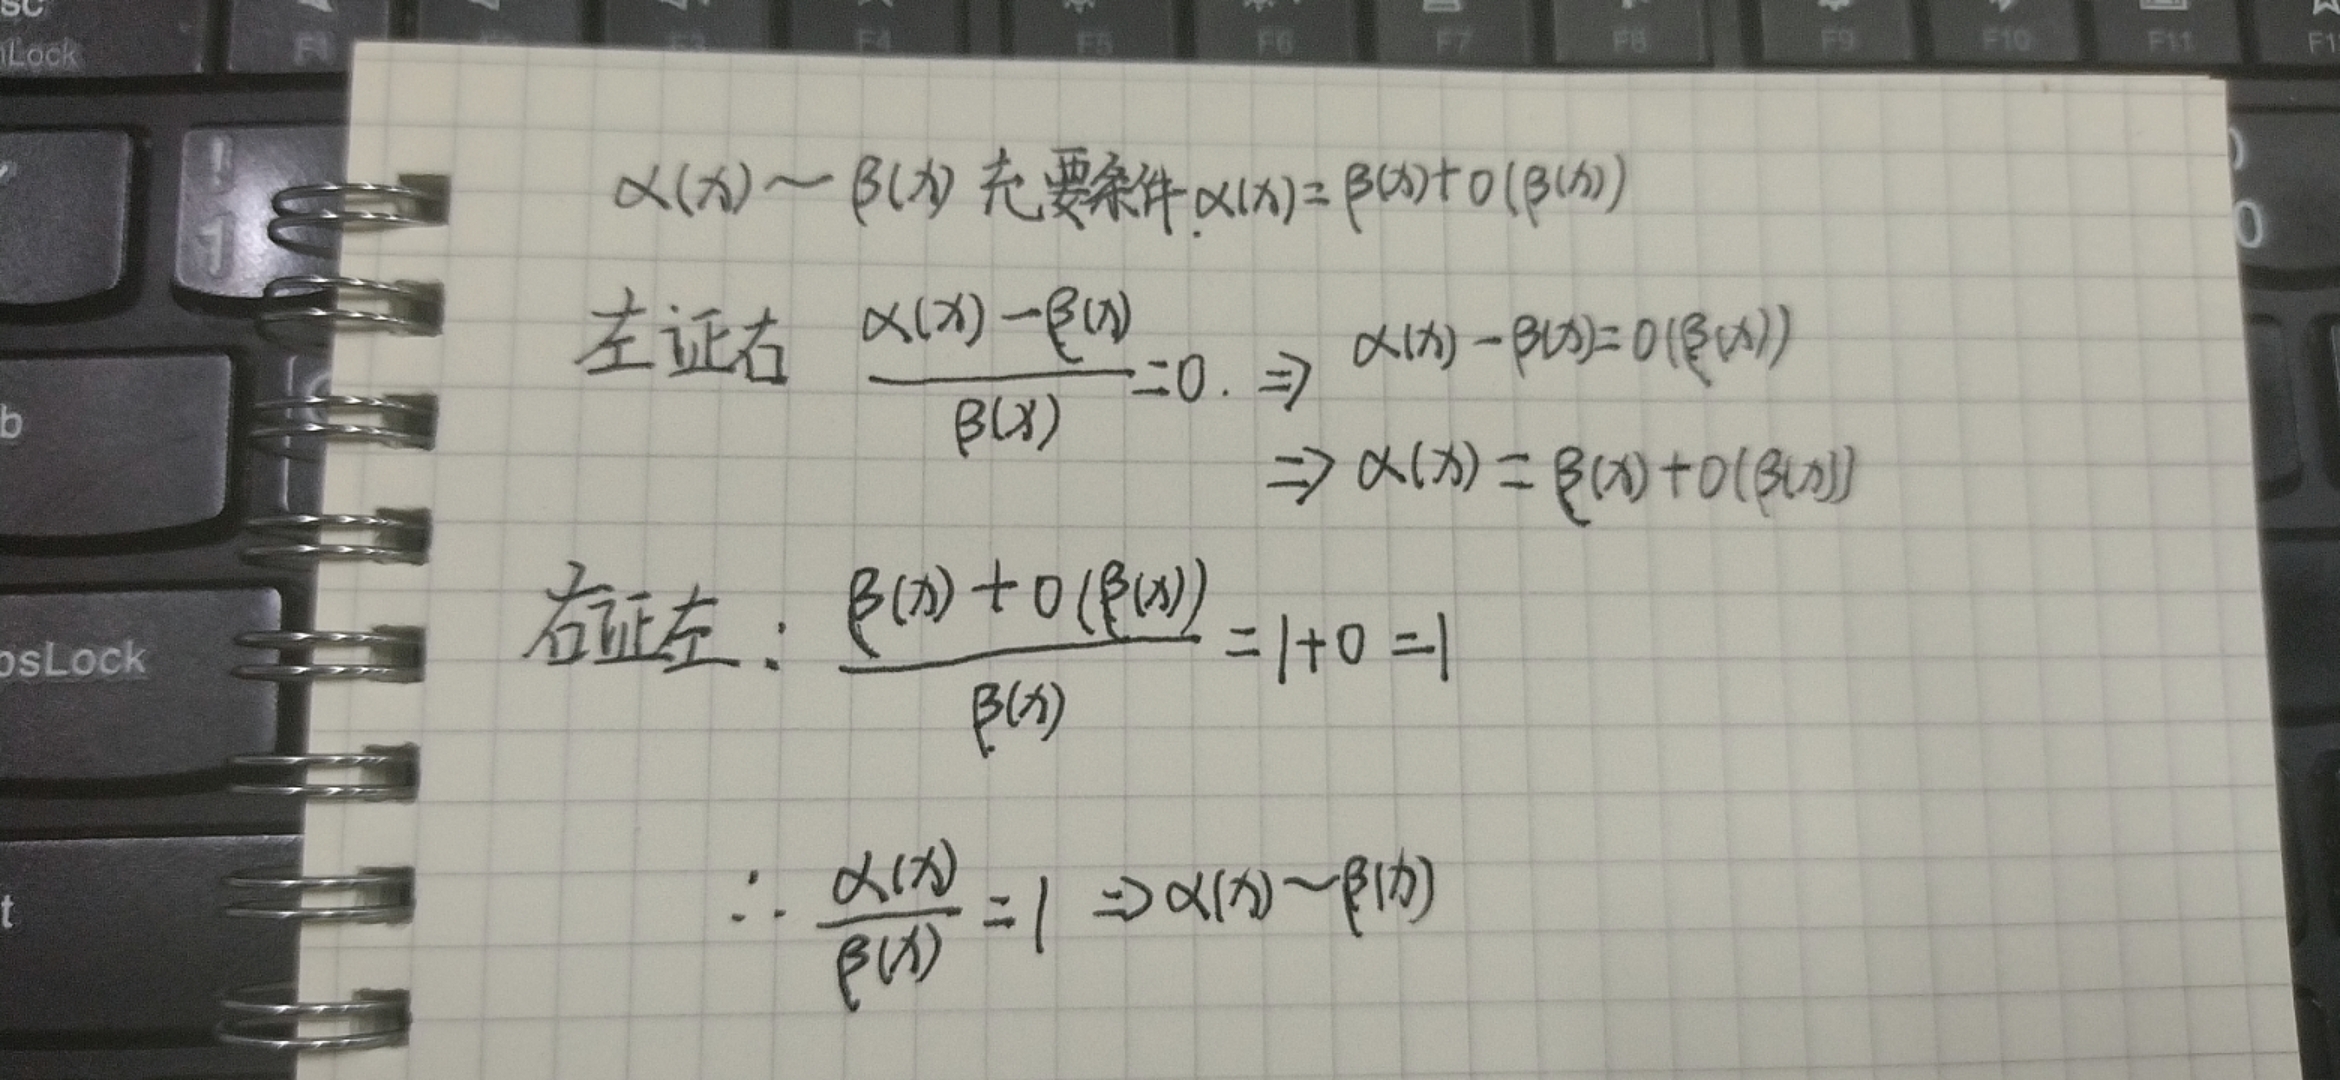 sc
nLock
F1
F3
F4
F5
F6
F7
F8
F9
F10
F11
!
1
)
0
b
psLock
t
α(x)～β(x) 充要条件.α(x)=β(x)+o(β(x))
左证右 (α(x)-β(x))/β(x)=0. ⇒ α(x)-β(x)=o(β(x))
⇒ α(x)=β(x)+o(β(x))
右证左: (β(x)+o(β(x)))/β(x)=1+0=1
∴ α(x)/β(x)=1 ⇒α(x)～β(x)